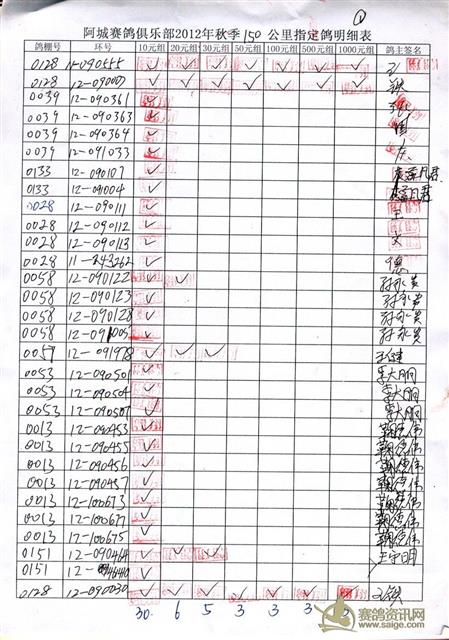 ①
阿城赛鸽俱乐部2012年秋季150公里指定鸽明细表
鸽棚号 环号 10元组 20元组 30元组 50元组 100元组 500元组 1000元组 鸽主签名
0128 12-090555 ✓ ✓ ✓ ✓ ✓ ✓ ✓ 王
0128 12-090007 ✓ ✓ ✓ ✓ ✓ ✓ ✓ 锁
0039 12-090361 ✓
0039 12-090363 ✓
0039 12-090364 ✓ 国
0039 12-091033 ✓ 友
0133 12-090107 ✓
0133 12-091004 ✓
0028 12-090111 ✓ 王
0028 12-090112 ✓
0028 12-090113 ✓ 文
0028 11-243262 ✓ 德
0058 12-090122 ✓ ✓ 孙永贵
0058 12-090123 ✓ 孙永贵
0058 12-090128 ✓ 孙永贵
0058 12-091005 ✓ 孙永贵
0057 12-091978 ✓ ✓ ✓ 王健
0053 12-090501 ✓ 李大朋
0053 12-090504 ✓ 李大朋
0053 12-090507 ✓ 李大朋
0013 12-090453 ✓ 韩德伟
0013 12-090455 ✓ 韩德伟
0013 12-090456 ✓ 韩德伟
0013 12-090457 ✓ 韩德伟
0013 12-100673 ✓ 韩德伟
0013 12-100677 ✓ 韩德伟
0013 12-100675 ✓ 韩德伟
0151 12-090464 ✓ ✓ ✓ 王守明
0151 12- ✓
0128 12-090030 ✓ ✓ ✓ ✓ ✓ ✓ ✓ 王锁
30 6 5 3 3 3
赛鸽资讯网
www.saige.com